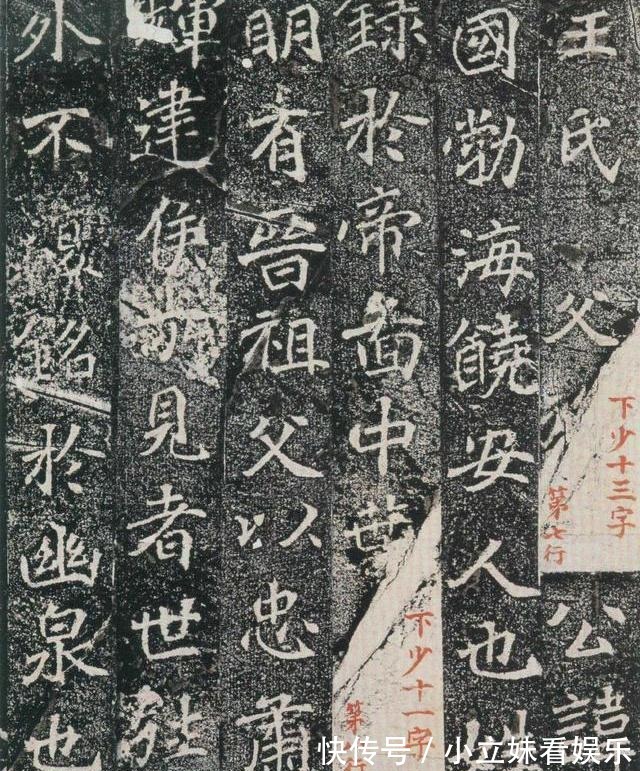 王氏父
下少十三字
第七行
公諱
國勃海饒安人也
錄於帝啚中葉
下少十一字
第行
明有晉祖父以忠肅
輝建侯見者世
外不銘於幽泉也
快传号/小立妹看娱乐